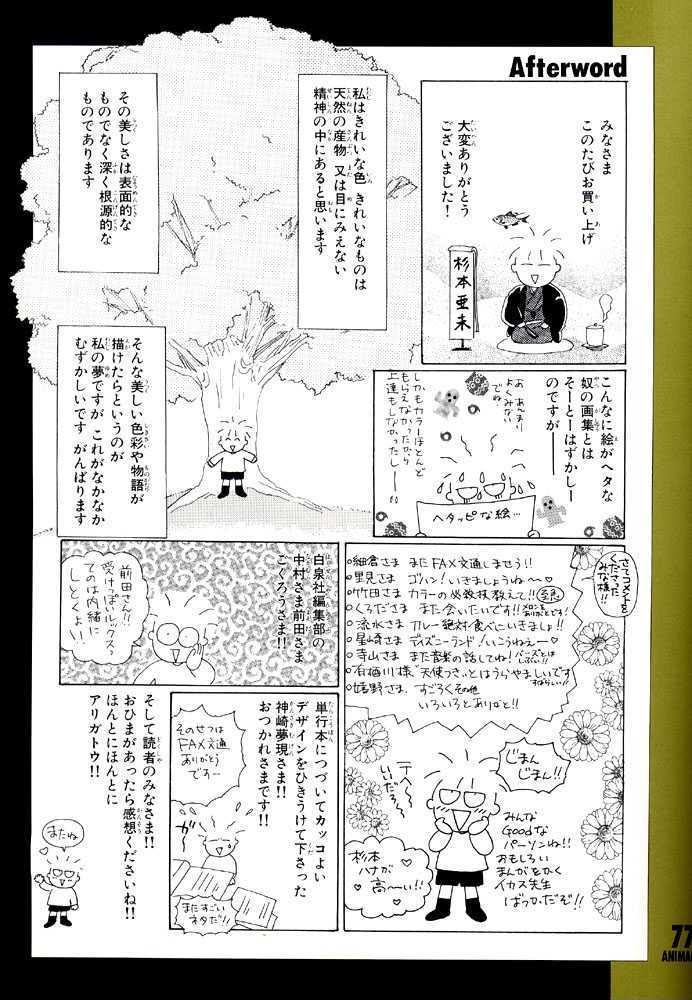 Afterword
みなさま
このたびお買い上げ
大変ありがとう
ございました！
杉本亜未
私はきれいな色 きれいなものは
天然の産物 又は目にみえない
精神の中にあると思います
その美しさは表面的な
ものでなく深く根源的な
ものであります
そんな美しい色彩や物語が
描けたらというのが
私の夢ですが これがなかなか
むずかしいです がんばります
こんなに絵がヘタな
奴の画集とは
そーとーはずかしー
のですが──
お、あんまり
よくみない
でね
しかもカラーほとんど
もらえなかったから
上達もしなかったしー
ヘタッピな絵…
さてコメントを
くださった
みな様!!
○細倉さま またFAX文通しませう!!
○里見さま ゴハン!いきましょうね〜♡
○竹田さま カラーの必殺技教えて!!
○くろださま また会いたいです!!
○流水さま カレー絶対食べにいきましょ!!
○星崎さま ディズニーランド!いこうねえー
○寺山さま また音楽の話してね!
○有栖川様 “天使つき”とはうらやましいです
○嬉野さま すごろくその他
いろいろとありがと!!
じまん
じまん!!
テへへ
いいだろー
みんな
Goodな
パーソンね!!
おもしろい
まんがをかく
イカス先生
ばっかだぞ!!
杉本
ハナが
高〜い!!
白泉社編集部の
中村さま前田さま
ごくろうさま!!
前田さん!!
受けっぽいルックス〜
てのは内緒に
しとくよ!!
単行本につづいてカッコよい
デザインをひきうけて下さった
神崎夢現さま!!
おつかれさまです!!
そのせつは
FAX文通
ありがとう
です…
ガーッ
またすごい
ネタだ!!
そして読者のみなさま!!
おひまがあったら感想くださいね!!
ほんとにほんとに
アリガトウ!!
またね
77
ANIMA